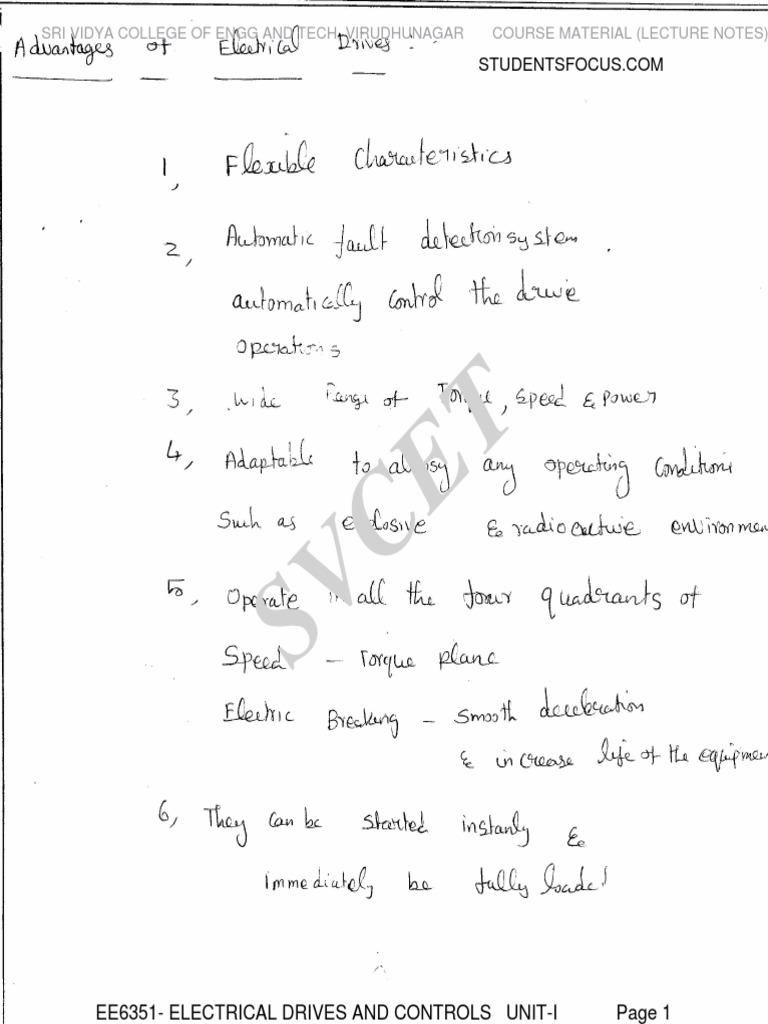 SRI VIDYA COLLEGE OF ENGG AND TECH, VIRUDHUNAGAR COURSE MATERIAL (LECTURE NOTES)
Advantages of Electrical Drives.
STUDENTSFOCUS.COM
1, Flexible Characteristics
2, Automatic fault detection system.
automatically control the drive
operations
3, wide Range of Torque, speed & power
4, Adaptable to almosy any operating Conditions
Such as explosive & radioactive environmen
5, Operate in all the four quadrants of
Speed - Torque plane
Electric Breaking - Smooth deceleration
& increase life of the equipmen
6, They can be started instanly &
Immediately be fully loaded
SVCET
EE6351- ELECTRICAL DRIVES AND CONTROLS UNIT-I Page 1